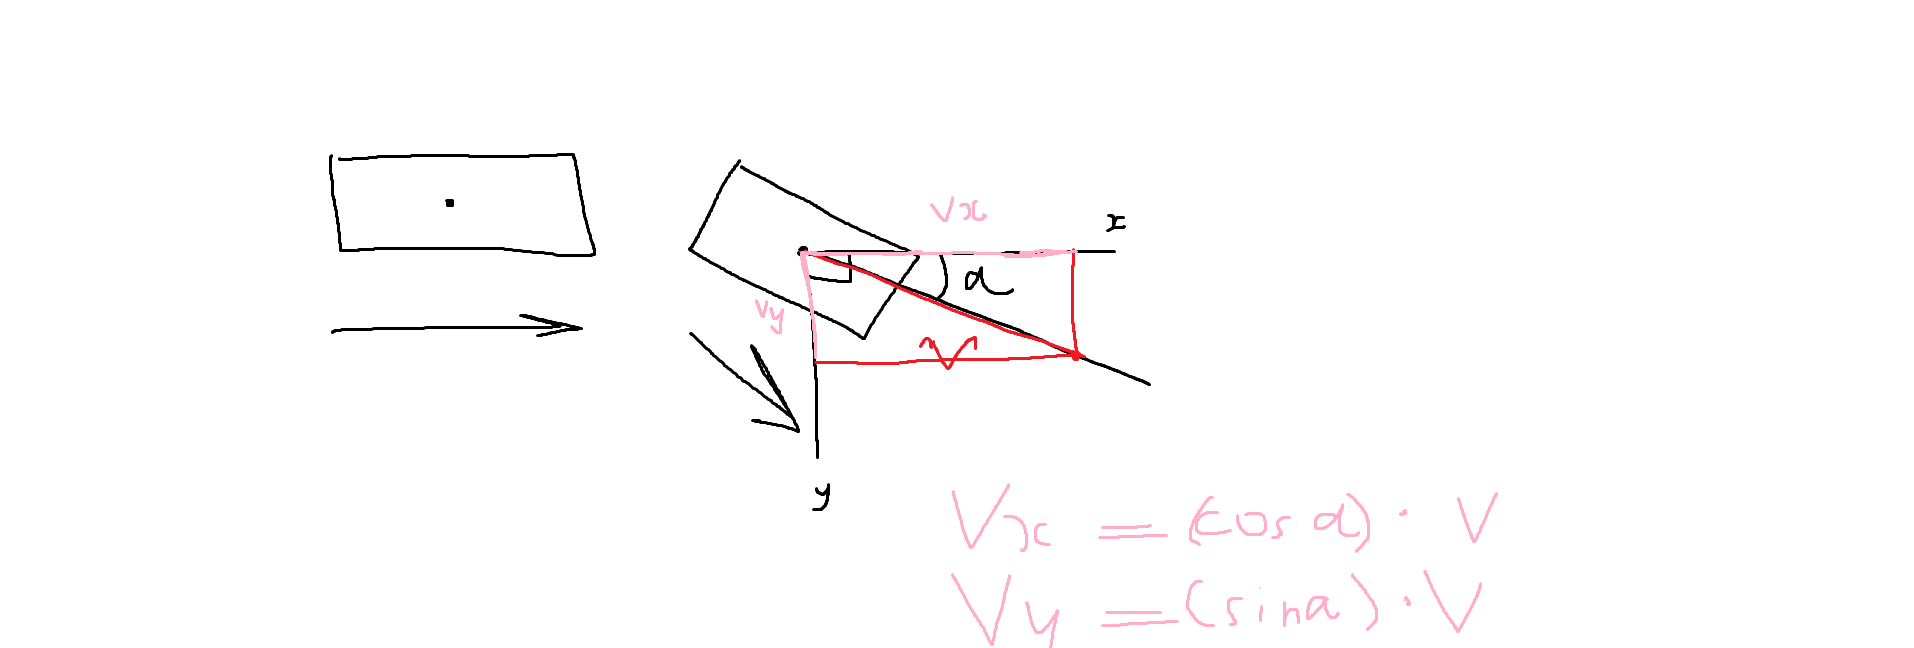 Vx
x
α
Vy
V
y
Vx = (cos α) · V
Vy = (sin α) · V